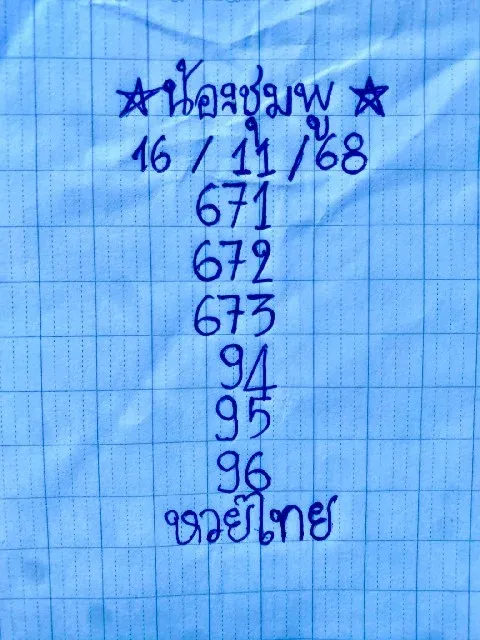 ☆น้องชุมพู ☆
16 / 11 / 68
671
672
673
94
95
96
หวยไทย